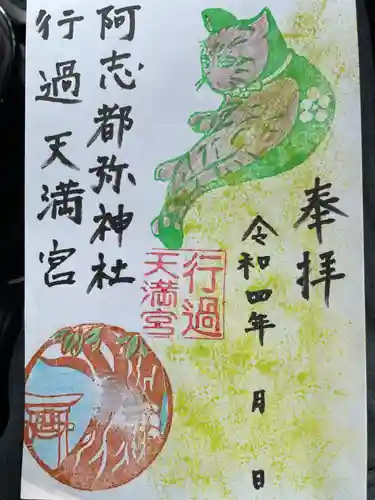 奉拝
令和四年 月 日
阿志都弥神社
行過天満宮
行過
天満宮